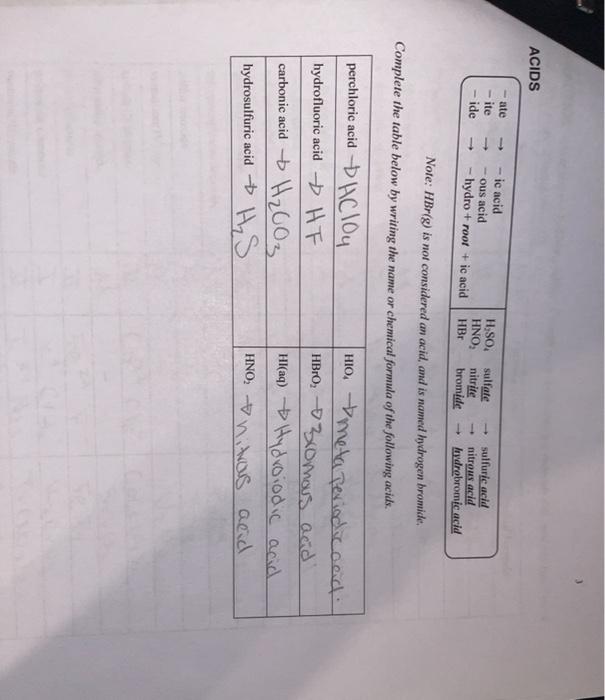 ACIDS
– ate → – ic acid H₂SO₄ sulfate → sulfuric acid
– ite → – ous acid HNO₂ nitrite → nitrous acid
– ide → – hydro + root + ic acid HBr bromide → hydrobromic acid
Note: HBr(g) is not considered an acid, and is named hydrogen bromide.
Complete the table below by writing the name or chemical formula of the following acids.
perchloric acid → HClO₄ HIO₄ → metaperiodic acid.
hydrofluoric acid → HF HBrO₂ → Bromous acid
carbonic acid → H₂CO₃ HI(aq) → Hydroiodic acid
hydrosulfuric acid → H₂S HNO₂ → nitros acid